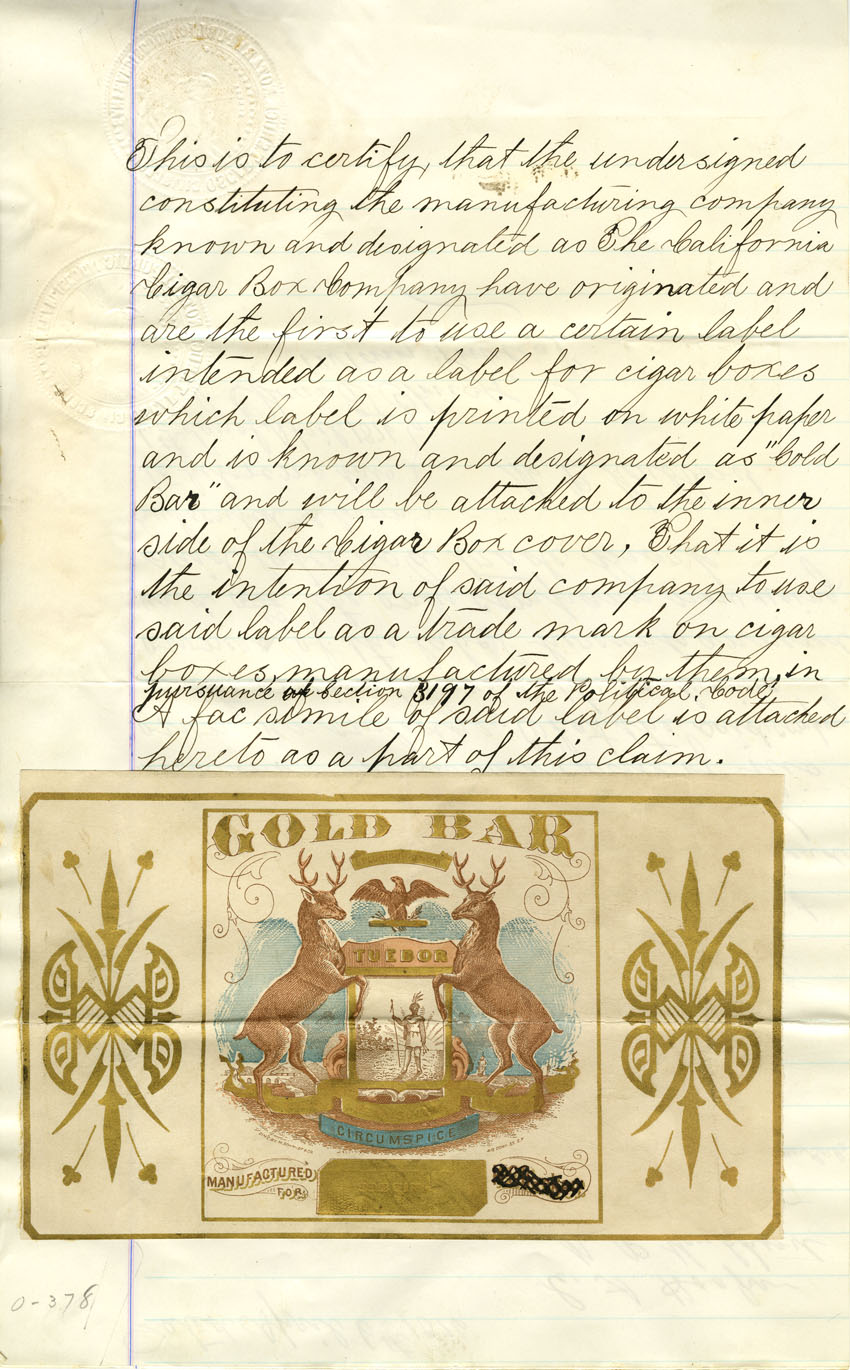 This is to certify, that the undersigned
constituting the manufacturing company
known and designated as The California
Cigar Box Company have originated and
are the first to use a certain label
intended as a label for cigar boxes
which label is printed on white paper
and is known and designated as "Gold
Bar" and will be attached to the inner
side of the Cigar Box cover, That it is
the intention of said company to use
said label as a trade mark on cigar
boxes manufactured by them, in
pursuance section 3197 of the Political Code,
A fac simile of said label is attached
hereto as a part of this claim.
GOLD BAR
TUEBOR
CIRCUMSPICE
MANUFACTURED
FOR
0-378